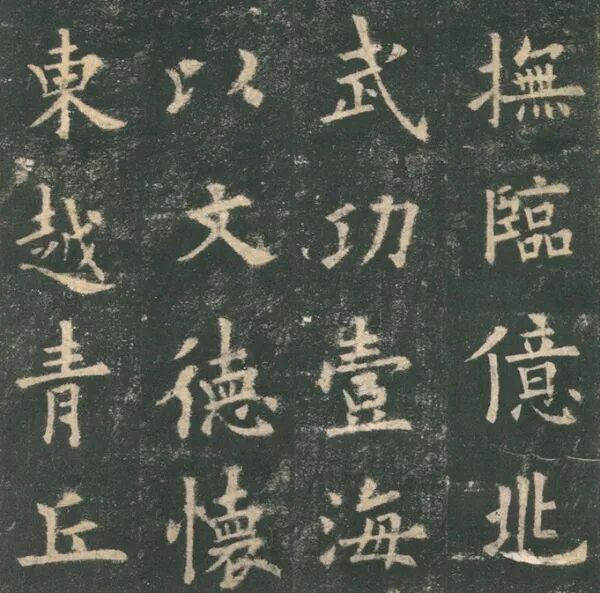 撫臨億兆
武功壹海
以文德懷
東越青丘